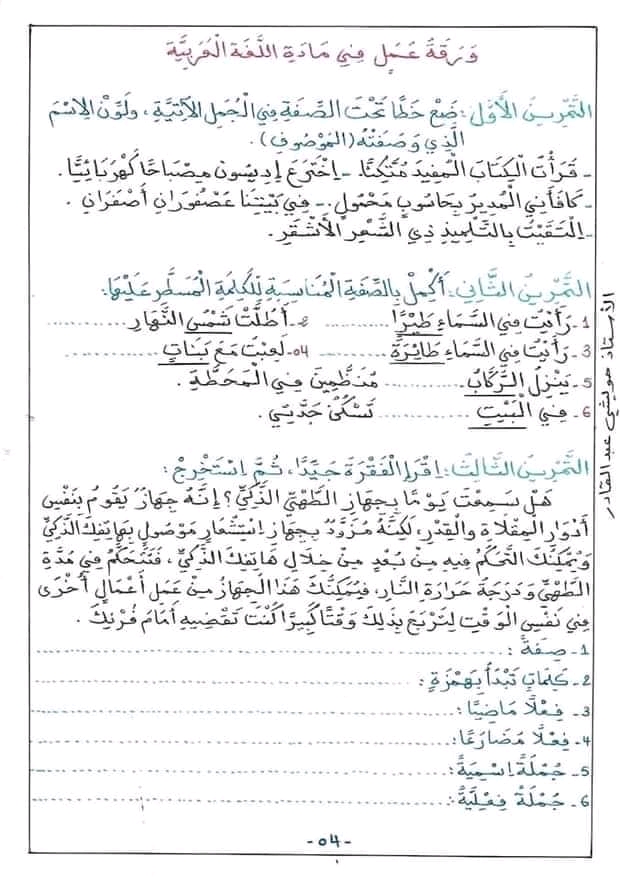 وَرَقَةُ عَمَلٍ فِي مَادَةِ اللُّغَةِ الْعَرَبِيَّةِ
التَّمْرِينُ الْأَوَّلُ: ضَعْ خَطًّا تَحْتَ الصِّفَةِ فِي الْجُمَلِ الْآتِيَةِ، وَلَوِّنْ الِاسْمَ
الَّذِي وَصَفَتْهُ (الْمَوْصُوفَ).
- قَرَأْتُ الْكِتَابَ الْمُفِيدَ مُتَّكِئًا. - اِخْتَرَعَ إِدِيسُون مِصْبَاحًا كَهْرَبَائِيًّا.
- كَافَأَنِي الْمُدِيرُ بِحَاسُوبٍ مَحْمُولٍ. - فِي بَيْتِنَا عُصْفُورَانِ أَصْفَرَانِ.
- الْتَقَيْتُ بِالتِّلْمِيذِ ذِي الشَّعْرِ الْأَشْقَرِ.
التَّمْرِينُ الثَّانِي: أَكْمِلْ بِالصِّفَةِ الْمُنَاسِبَةِ لِلْكَلِمَةِ الْمُسَطَّرِ عَلَيْهَا:
1- رَأَيْتُ فِي السَّمَاءِ طَيْرًا ............ 2- أَطَلَّتْ شَمْسُ النَّهَارِ ............
3- رَأَيْتُ فِي السَّمَاءِ طَائِرَةً ............ 04- لَعِبْتُ مَعَ بَنَاتٍ ............
5- يَنْزِلُ الرُّكَّابُ ............ مُنَظَّمِينَ فِي الْمَحَطَّةِ.
6- فِي الْبَيْتِ ............ تَسْكُنُ جَدَّتِي.
التَّمْرِينُ الثَّالِثُ: اِقْرَإِ الْفَقْرَةَ جَيِّدًا، ثُمَّ اسْتَخْرِجْ:
هَلْ سَمِعْتَ يَوْمًا بِجِهَازِ الطَّهْيِ الذَّكِيِّ؟ إِنَّهُ جِهَازٌ يَقُومُ بِنَفْسِ
أَدْوَارِ الْمِقْلَاةِ وَالْقِدْرِ، لَكِنَّهُ مُزَوَّدٌ بِجِهَازِ اسْتِشْعَارٍ مَوْصُولٍ بِهَاتِفِكَ الذَّكِيِّ
وَيُمْكِنُكَ التَّحَكُّمُ فِيهِ مِنْ بُعْدٍ مِنْ خِلَالِ هَاتِفِكَ الذَّكِيِّ، فَتَتَحَكَّمُ فِي مُدَّةِ
الطَّهْيِ وَدَرَجَةِ حَرَارَةِ النَّارِ، فَيُمَكِّنُكَ هَذَا الْجِهَازُ مِنْ عَمَلِ أَعْمَالٍ أُخْرَى
فِي نَفْسِ الْوَقْتِ لِتَرْبَحَ بِذَلِكَ وَقْتًا كَبِيرًا كُنْتَ تَقْضِيهِ أَمَامَ فُرْنِكَ.
1- صِفَةً: ............
2- كَلِمَاتٍ تَبْدَأُ بِهَمْزَةٍ: ............
3- فِعْلًا مَاضِيًا: ............
4- فِعْلًا مُضَارِعًا: ............
5- جُمْلَةً اِسْمِيَةً: ............
6- جُمْلَةً فِعْلِيَّةً: ............
- 04 -
الأستاذ حويشي عبد القادر